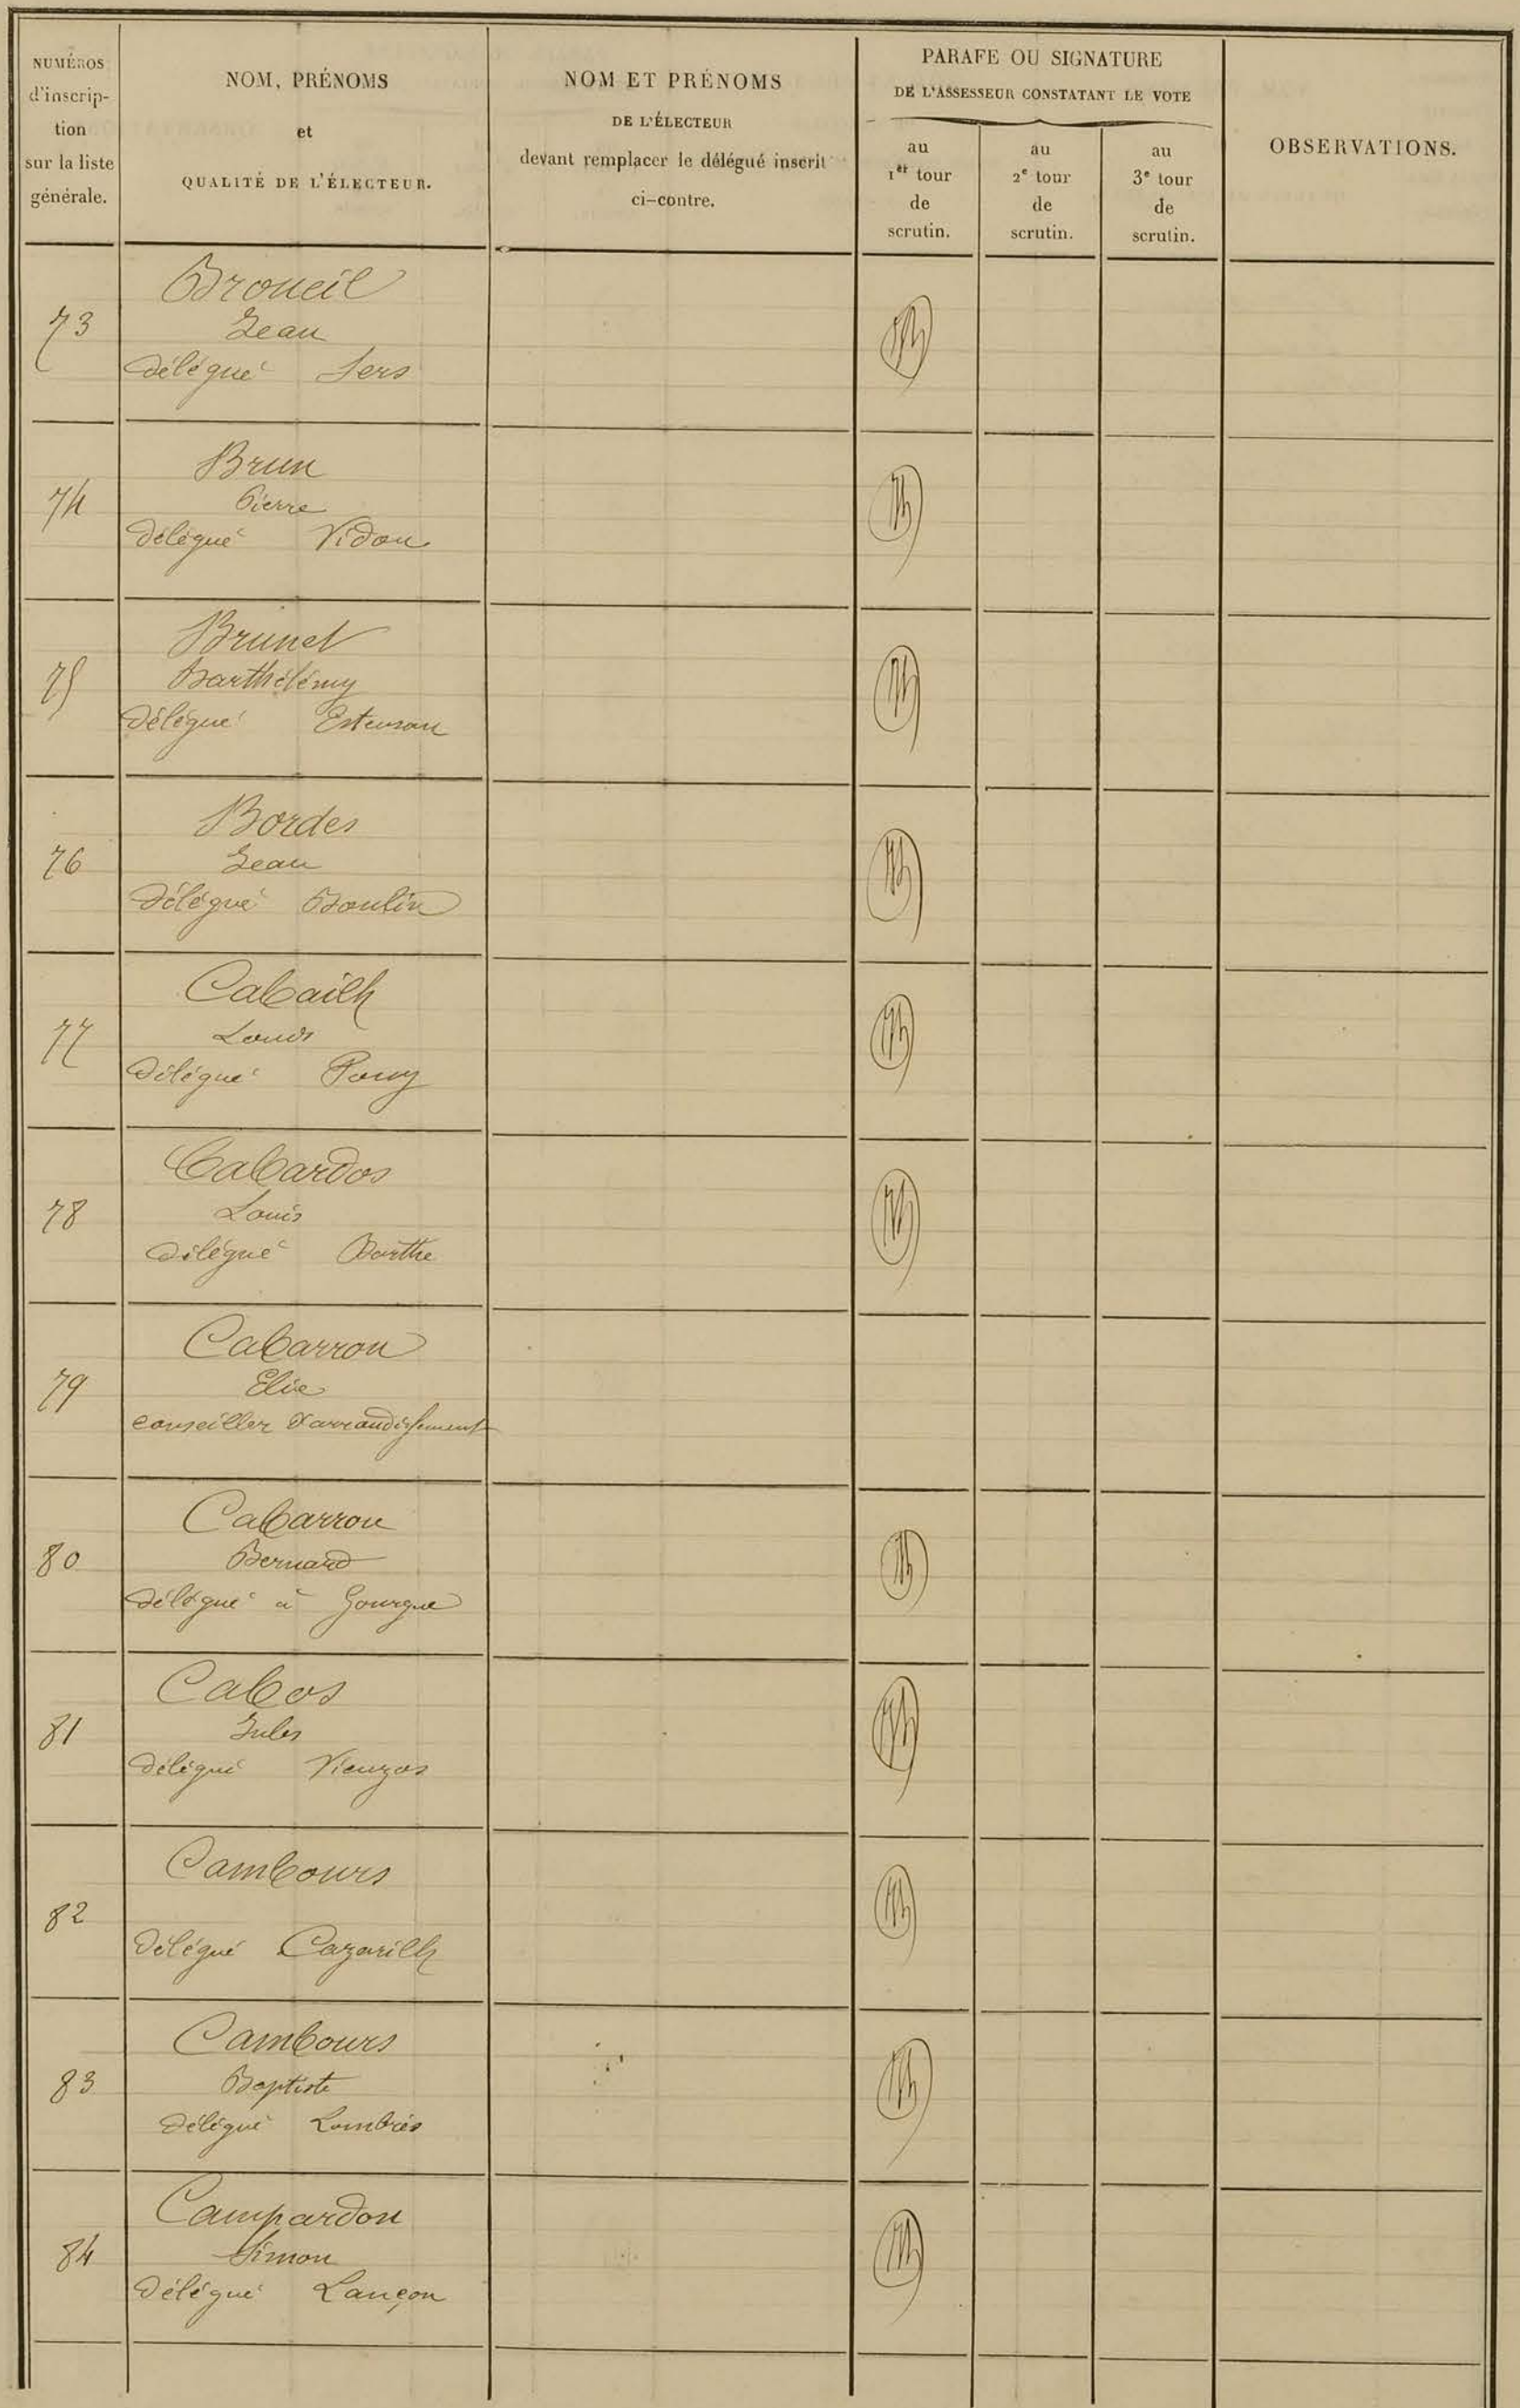 NUMÉROS
d'inscrip-
tion
sur la liste
générale.
NOM, PRÉNOMS
et
QUALITÉ DE L'ÉLECTEUR.
NOM ET PRÉNOMS
DE L'ÉLECTEUR
devant remplacer le délégué inscrit
ci-contre.
PARAFE OU SIGNATURE
DE L'ASSESSEUR CONSTATANT LE VOTE
au
1er tour
de
scrutin.
au
2e tour
de
scrutin.
au
3e tour
de
scrutin.
OBSERVATIONS.
Broueil
73 Jean
délégué Sers
Brun
74 Pierre
Délégué Vidou
Brunet
75 Barthélémy
Délégué Estensan
Bordes
76 Jean
Délégué Boulin
Cabailh
77 Louis
Délégué Pouy
Cabardos
78 Louis
délégué Barthe
Cabarrou
79 Elie
conseiller d'arrondissement
Cabarrou
80 Bernard
délégué à Gourgue
Cabos
81 Jules
Délégué Vieuzos
Cambours
82
Délégué Cazarilh
Cambours
83 Baptiste
Délégué Lombrès
Campardon
84 Simon
Délégué Lançon